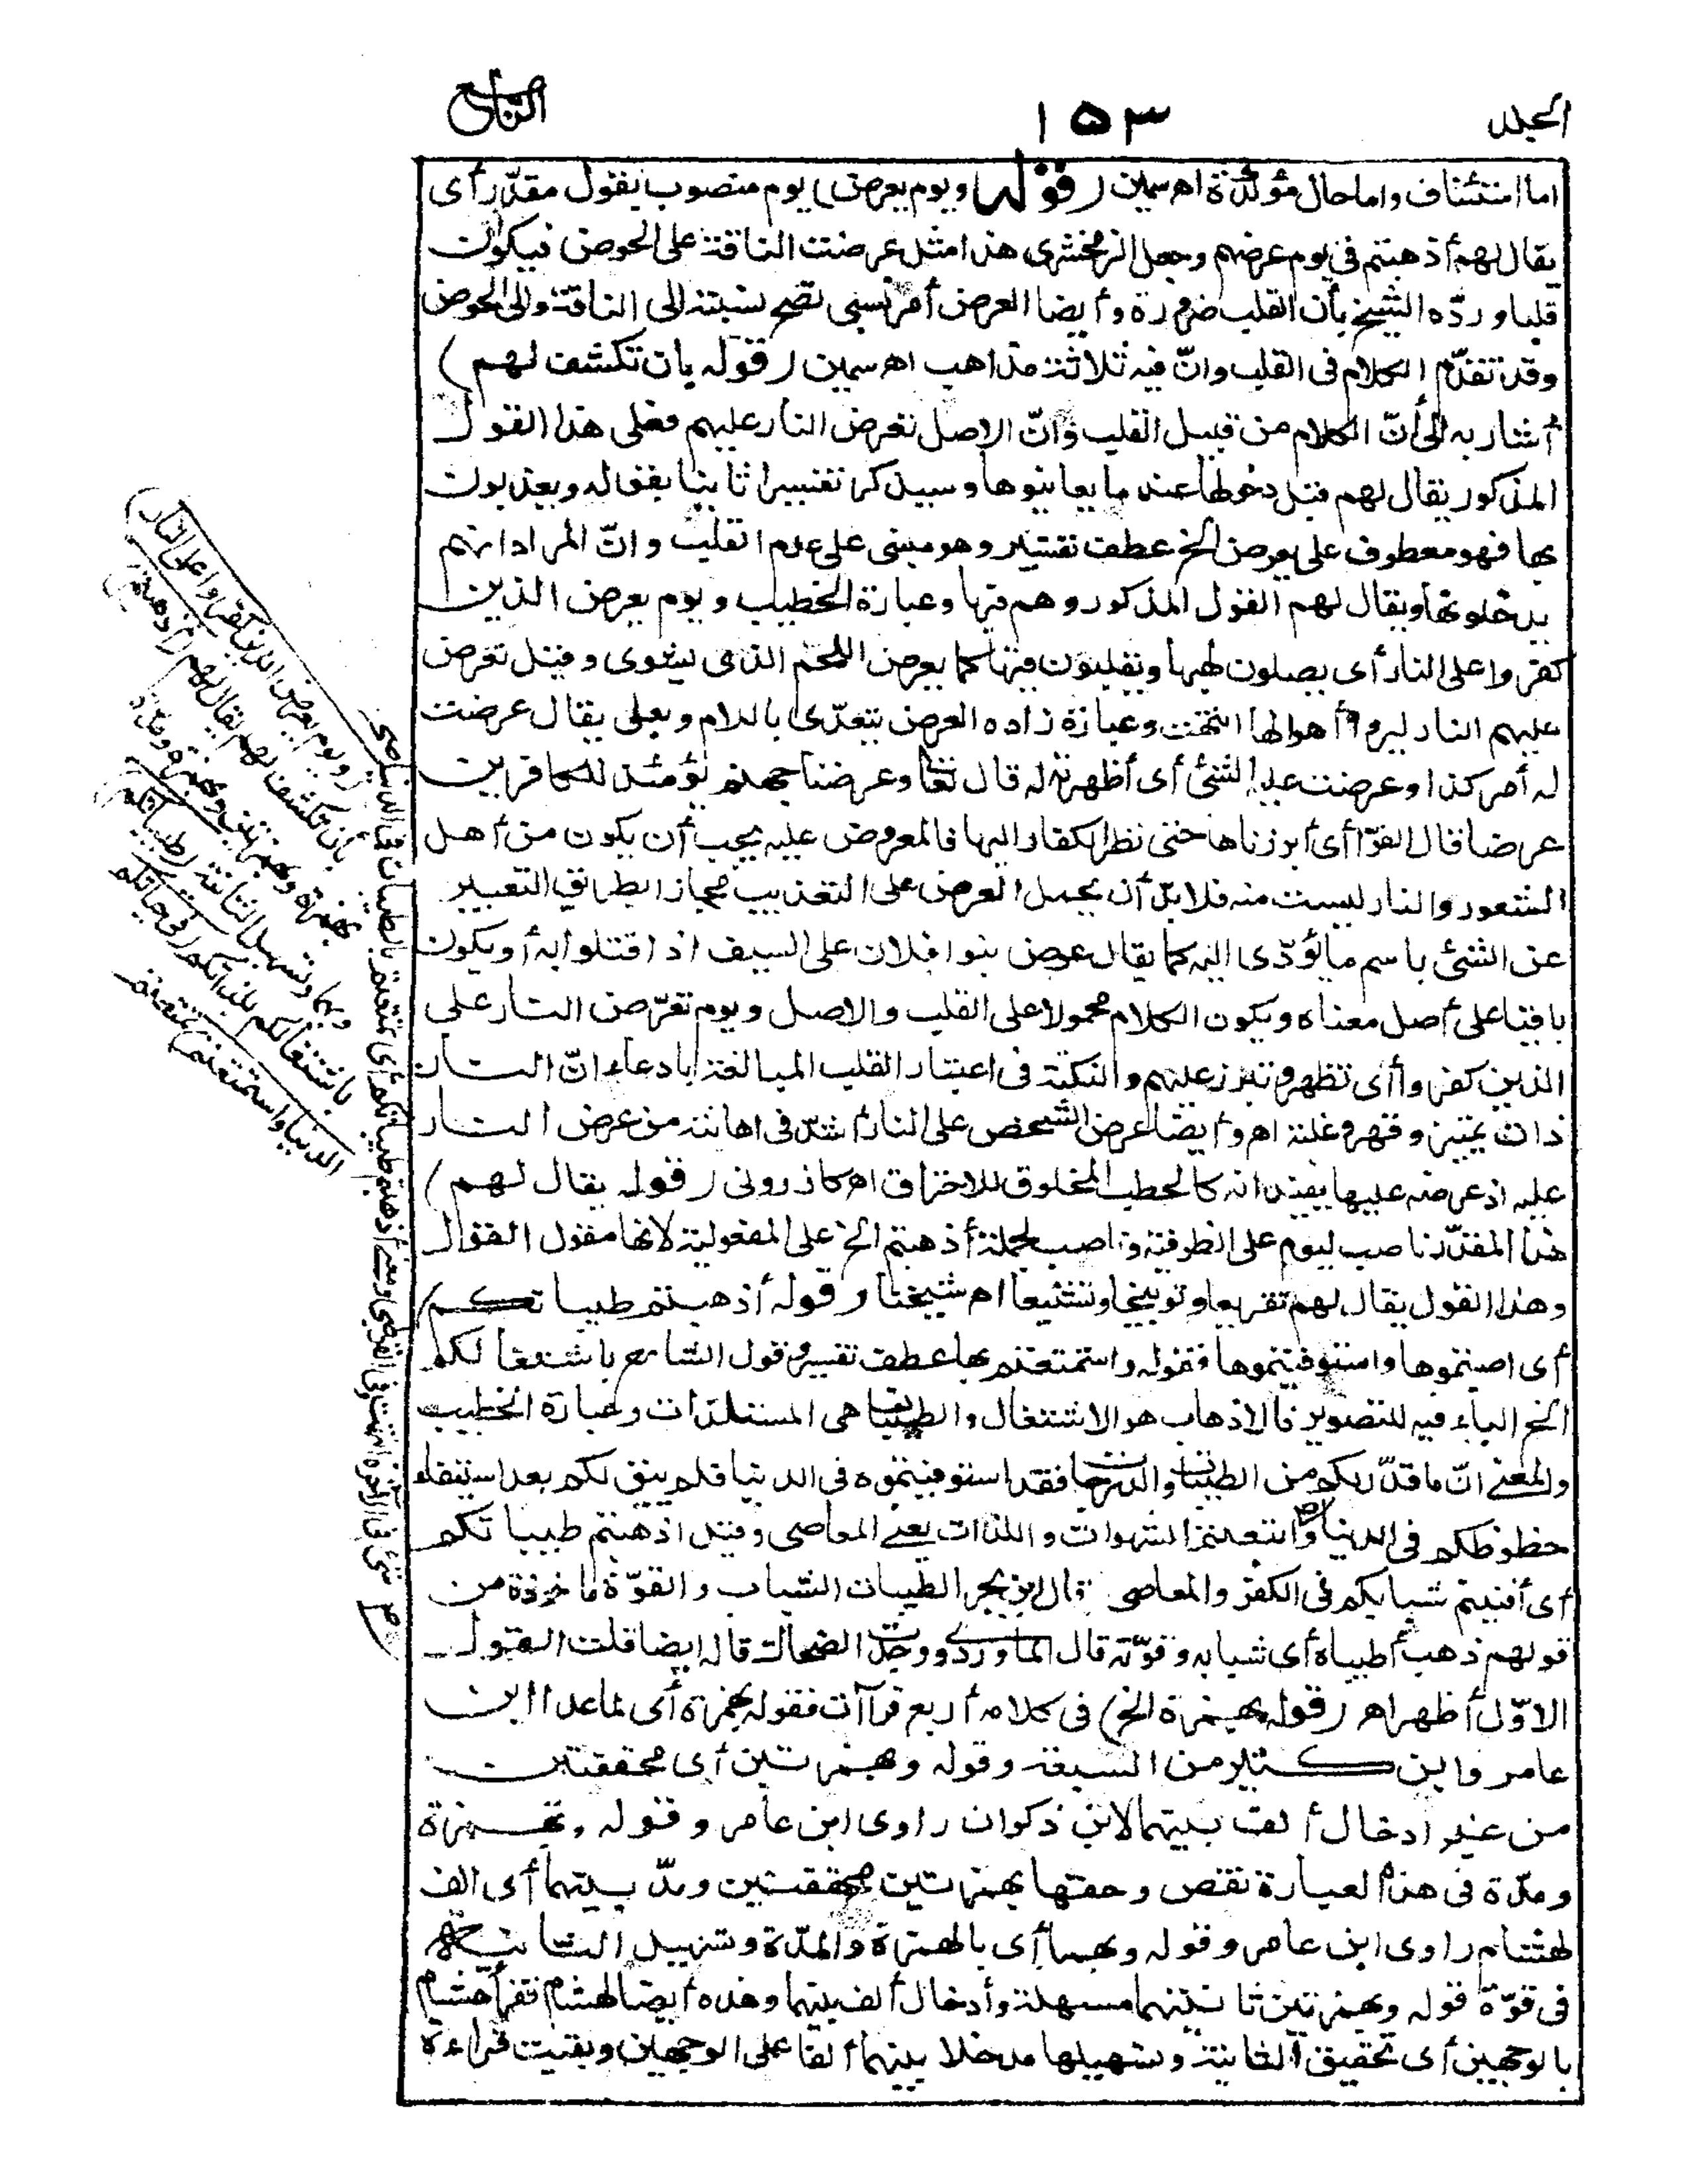 المجلد
١٥٣
التاسع
اما استئناف واما حال مؤكدة اهـ سمين (قوله ويوم يعرض) يوم منصوب بقول مقدّر أى
يقال لهم أذهبتم فى يوم عرضهم وجعل الزمخشرى هذا مثل عرضت الناقة على الحوض فيكون
قلبا وردّه الشيخ بأن القلب ضرورة وأيضا العرض أمر نسبى تصح نسبته الى الناقة والى الحوض
وقد تقدّم الكلام فى القلب وانّ فيه ثلاثة مذاهب اهـ سمين (قوله بان تكشف لهم)
أشار به الى أنّ الكلام من قبيل القلب وانّ الاصل تعرض النار عليهم فعلى هذا القول
المذكور يقال لهم قبل دخولها عند ما يعاينوها وسيذكر تفسيرا ثانيا بقوله ويعذبون
بها فهو معطوف على يعرض الخ عطف تفسير وهو مبنى على عدم القلب وانّ المراد انهم
يدخلونها ويقال لهم القول المذكور وهم فيها وعبارة الخطيب ويوم يعرض الذين
كفروا على النار أى يصلون لهبها ويقلبون فيها كما يعرض اللحم الذى يشوى وقيل تعرض
عليهم النار ليروا أهوالها انتهت وعبارة زاده العرض يتعدّى باللام وبعلى يقال عرضت
له أمر كذا وعرضت عليه الشئ أى أظهرته له قال تعا وعرضنا جهنم يومئذ للكافرين
عرضا قال الفرّا أى أبرزناها حتى نظر الكفار اليها فالمعروض عليه يجب أن يكون من أهل
الشعور والنار ليست منه فلا بدّ أن يحمل العرض على التعذيب مجازا بطريق التعبير
عن الشئ باسم ما يؤدّى اليه كما يقال عرض بنو افلان على السيف اذا قتلوا به أو يكون
باقيا على أصل معناه ويكون الكلام محمولا على القلب والاصل ويوم تعرّض النار على
الذين كفروا أى تظهر وتبرز عليهم والنكتة فى اعتبار القلب المبالغة بادعاء انّ النار
ذات تمييز وقهر وغلبة اهـ وأيضا عرض الشخص على النار أشدّ فى اهانته من عرض النار
عليه اذ عرضه عليها يفيد انه كالحطب المخلوق للاحتراق اهـ كازرونى (قوله يقال لهم)
هذا المقدّر ناصب ليوم على الظرفية وناصب لجملة أذهبتم الخ على المفعولية لانها مقول القول
وهذا القول يقال لهم تقريعا وتوبيخا وتشنيعا اهـ شيخنا (قوله أذهبتم طيباتكم)
أى اصبتموها واستوفيتموها فقوله واستمتعتم بها عطف تفسير وقول الشارح باشتغالكم
الخ الباء فيه للتصوير فالاذهاب هو الاشتغال والطيبات هى المستلذات وعبارة الخطيب
والمعنى انّ ما قدّر لكم من الطيبات والدرجات فقد استوفيتموه فى الدنيا فلم يبق لكم بعد استيفاء
حظوظكم فى الدنيا وقيل اذهبتم طيباتكم
أى أفنيتم شبابكم فى الكفر والمعاصى قال ابن بحر الطيبات الشباب والقوّة مأخوذة من
قولهم ذهب أطيباه أى شبابه وقوّته قال الماوردى ووجدت الضحاك قاله ايضا قلت القول
الاوّل أظهر اهـ (قوله بهمزة الخ) فى كلامه أربع قرآآت فقوله بهمزة أى لما عدا ابن
عامر وابن كثير من السبعة وقوله وبهمزتين أى محققتين
من غير ادخال ألف بينهما لابن ذكوان راوى ابن عامر وقوله وبهمزة
ومدّة فى هذه العبارة نقص وحقها بهمزتين محققتين ومدّ بينهما أى الف
لهشام راوى ابن عامر وقوله وبهما أى بالهمزة والمدّة وتسهيل الثانية
فى قوّة قوله وبهمزتين ثانيتهما مسهلة وأدخال ألف بينهما وهذه أيضا لهشام فقرأ هشام
بالوجهين أى تحقيق الثانية وتسهيلها مدخلا بينهما ألفا على الوجهين وبقيت قراءة
(ويوم يعرض الذين كفروا على النار)
بأن تكشف لهم يقال لهم (أذهبتم)
بهمزة وبهمزتين وبهمزة ومدّة
وبهما وتسهيل الثانية (طيباتكم)
باشتغالكم بلذاتكم (فى حياتكم
الدنيا واستمتعتم) تمتعتم